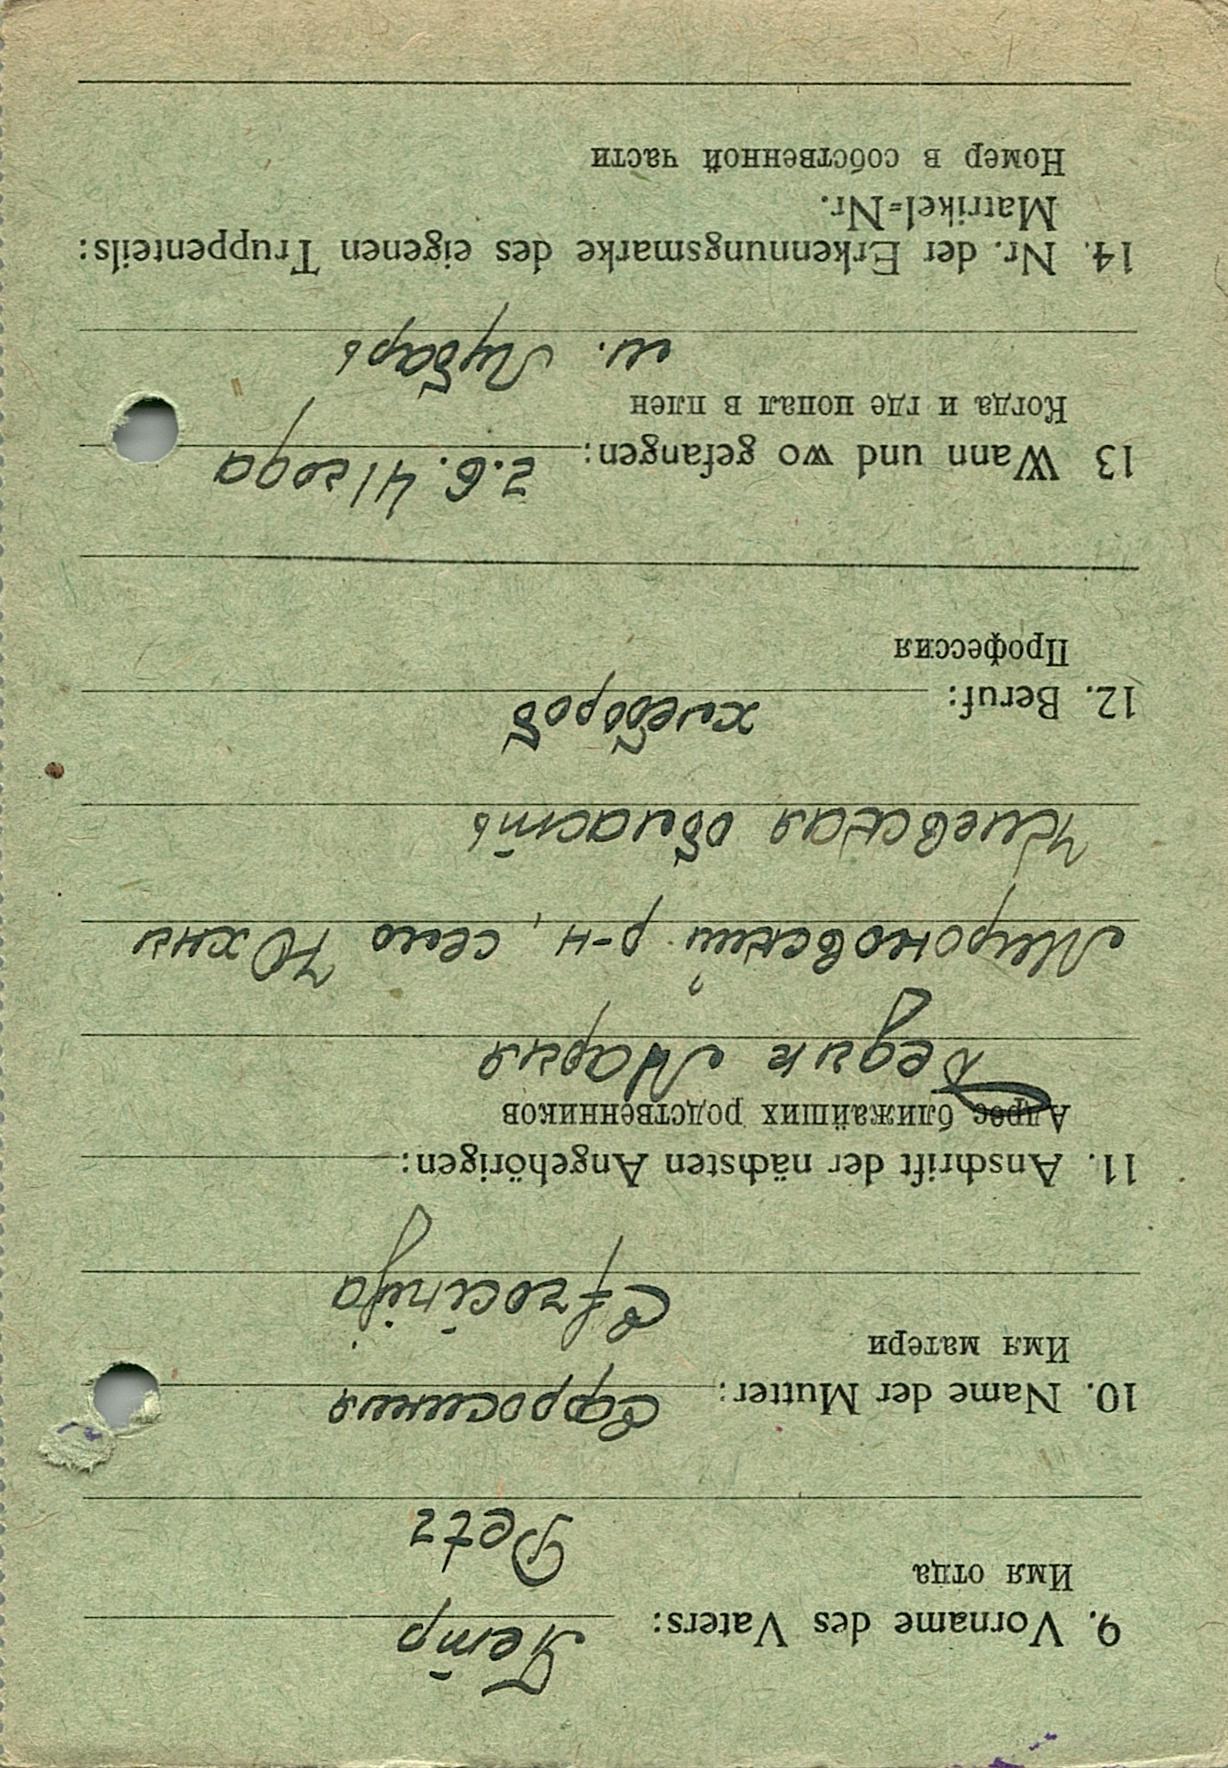 9. Vorname des Vaters: Петр
Имя отца
Petr
10. Name der Mutter: Ефросиния
Имя матери
11. Anschrift der nächsten Angehörigen:
Адрес ближайших родственников
Бедик Мария
Мироновский р-н, село Юхни
Киевская область
12. Beruf: хлебороб
Профессия
13 Wann und wo gefangen: 2.6.41 года
Когда и где попал в плен
м. Любарь
14. Nr. der Erkennungsmarke des eigenen Truppenteils:
Matrikel=Nr.
Номер в собственной части